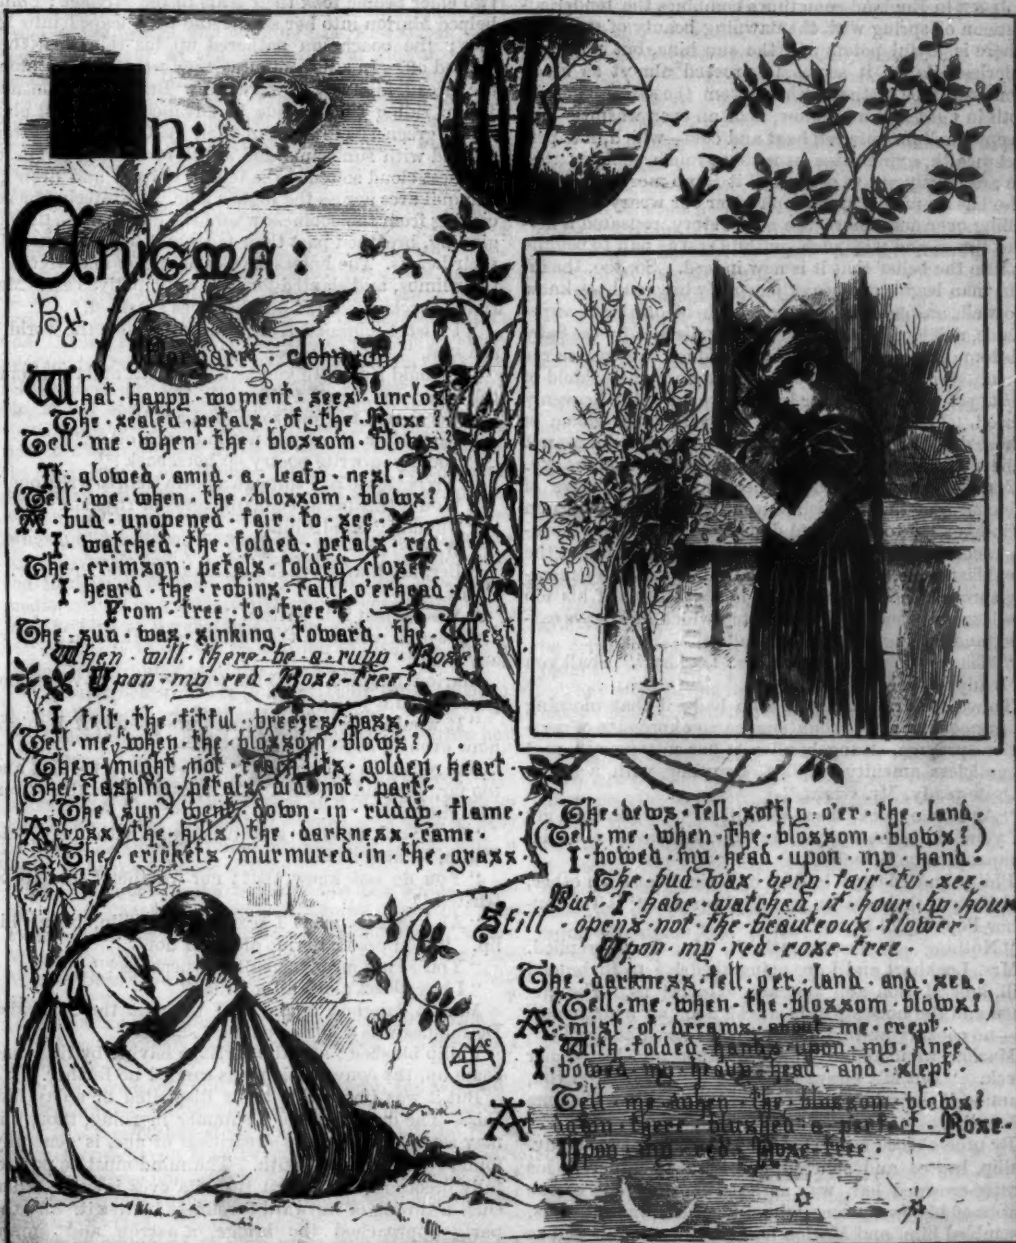 An:
Enigma:
By:
Margaret · Johnson
What · happy · moment · sees · unclose
The · sealed · petals · of · the · Rose?
Tell · me · when · the · blossom · blows?
It · glowed · amid · a · leafy · nest ·
(Tell · me · when · the · blossom · blows?)
A · bud · unopened · fair · to · see ·
I · watched · the · folded · petals · red ·
The · crimson · petals · folded · close
I · heard · the · robins · call · o'erhead ·
From · tree · to · tree ·
The · sun · was · sinking · toward · the · West
When · will · there · be · a · ruby · Rose
Upon · my · red · Rose-tree?
I · felt · the · fitful · breezes · pass ·
(Tell · me · when · the · blossom · blows?)
They · might · not · reach · its · golden · heart ·
The · clasping · petals · did · not · part ·
The · sun · went · down · in · ruddy · flame ·
Across · the · hills · the · darkness · came ·
The · crickets · murmured · in · the · grass ·
The · dews · fell · softly · o'er · the · land ·
(Tell · me · when · the · blossom · blows?)
I · bowed · my · head · upon · my · hand ·
The · bud · was · very · fair · to · see ·
But · I · have · watched · it · hour · by · hour
Still · opens · not · the · beauteous · flower
Upon · my · red · rose-tree ·
The · darkness · fell · o'er · land · and · sea ·
(Tell · me · when · the · blossom · blows?)
A · mist · of · dreams · about · me · crept ·
With · folded · hands · upon · my · knee
I · bowed · my · heavy · head · and · slept ·
Tell · me · when · the · blossom · blows?
At · dawn · there · blushed · a · perfect · Rose-
Upon · my · red · Rose-tree ·